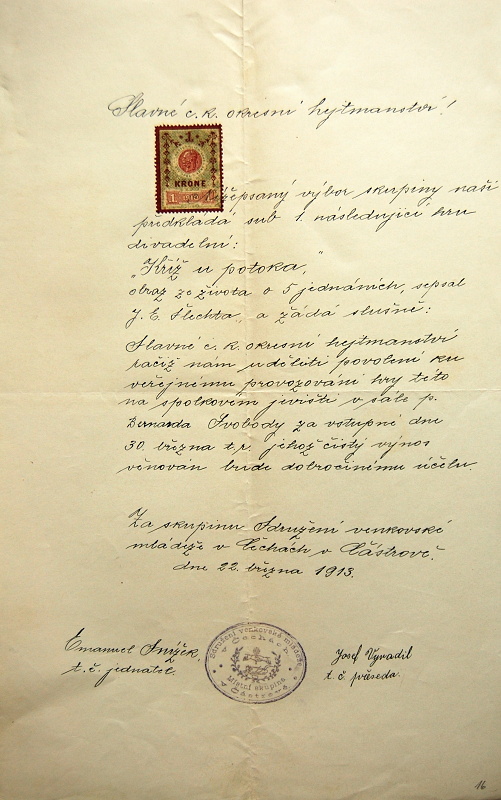 Slavné c. k. okresní hejtmanství!
1
KRONE
1 1910 1
psaný výbor skupiny naší
předkládá sub 1. následující hru
divadelní:
„Kříž u potoka,"
obraz ze života o 5 jednáních, sepsal
J. E. Šlechta, a žádá slušně:
Slavné c. k. okresní hejtmanství
račiž nám uděliti povolení ku
veřejnému provozování hry této
na spolkovém jevišti v sále p.
Bernarda Svobody za vstupné dne
30. března t. r. jehož čistý výnos
věnován bude dobročinému účelu.
Za skupinu Sdružení venkovské
mládeže v Čechách v Částrově.
dne 22. března 1913.
Emanuel
t. č. jednatel.
Sdružení venkovské mládeže
v Čechách
Místní skupina
v Částrově
Josef Vyvadil
t. č. předseda.
16